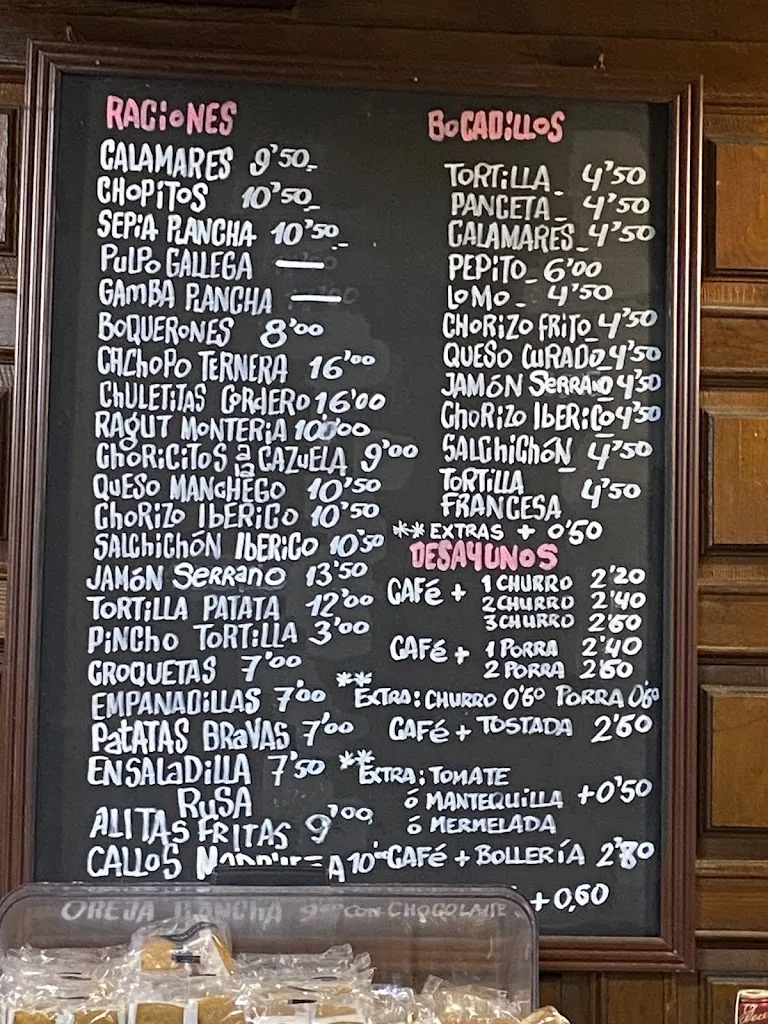 RACIONES
CALAMARES 9'50
CHOPITOS 10'50
SEPIA PLANCHA 10'50
PULPO GALLEGA —
GAMBA PLANCHA —
BOQUERONES 8'00
CACHOPO TERNERA 16'00
CHULETITAS CORDERO 16'00
RAGUT MONTERIA 10'00
CHORICITOS a la CAZUELA 9'00
QUESO MANCHEGO 10'50
CHORIZO IBERICO 10'50
SALCHICHÓN IBERICO 10'50
JAMÓN SERRANO 13'50
TORTILLA PATATA 12'00
PINCHO TORTILLA 3'00
CROQUETAS 7'00
EMPANADILLAS 7'00
PATATAS BRAVAS 7'00
ENSALADILLA 7'50
RUSA
ALITAS FRITAS 9'00
CALLOS 10'
OREJA PLANCHA 9'
BOCADILLOS
TORTILLA_ 4'50
PANCETA_ 4'50
CALAMARES_ 4'50
PEPITO_ 6'00
LOMO_ 4'50
CHORIZO FRITO_ 4'50
QUESO CURADO_ 4'50
JAMÓN SERRANO 4'50
CHORIZO IBERICO 4'50
SALCHICHÓN_ 4'50
TORTILLA
FRANCESA 4'50
** EXTRAS + 0'50
DESAYUNOS
CAFÉ + 1 CHURRO 2'20
2 CHURRO 2'40
3 CHURRO 2'60
CAFÉ + 1 PORRA 2'40
2 PORRA 2'60
** EXTRA: CHURRO 0'60 PORRA 0'60
CAFÉ + TOSTADA 2'60
** EXTRA: TOMATE
ó MANTEQUILLA +0'50
ó MERMELADA
CAFÉ + BOLLERÍA 2'80
+0,60
CON CHOCOLATE